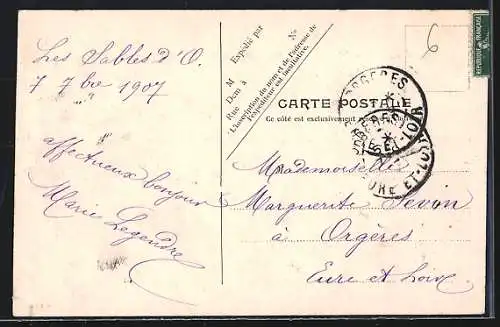 Les Sables d'O.
7 7bre 1907
affectueux bonjour
Marie Legendre
Expédié par
M
Dem à
Rue
No
L'inscription du nom et de l'adresse de
l'expéditeur est facultative.
CARTE POSTALE
Ce côté est exclusivement
ORGERES
EURE-ET-LOIR
6
REPUBLIQUE FRANÇAISE
Mademoiselle
Marguerite Sevin
à Orgères
Eure et Loir